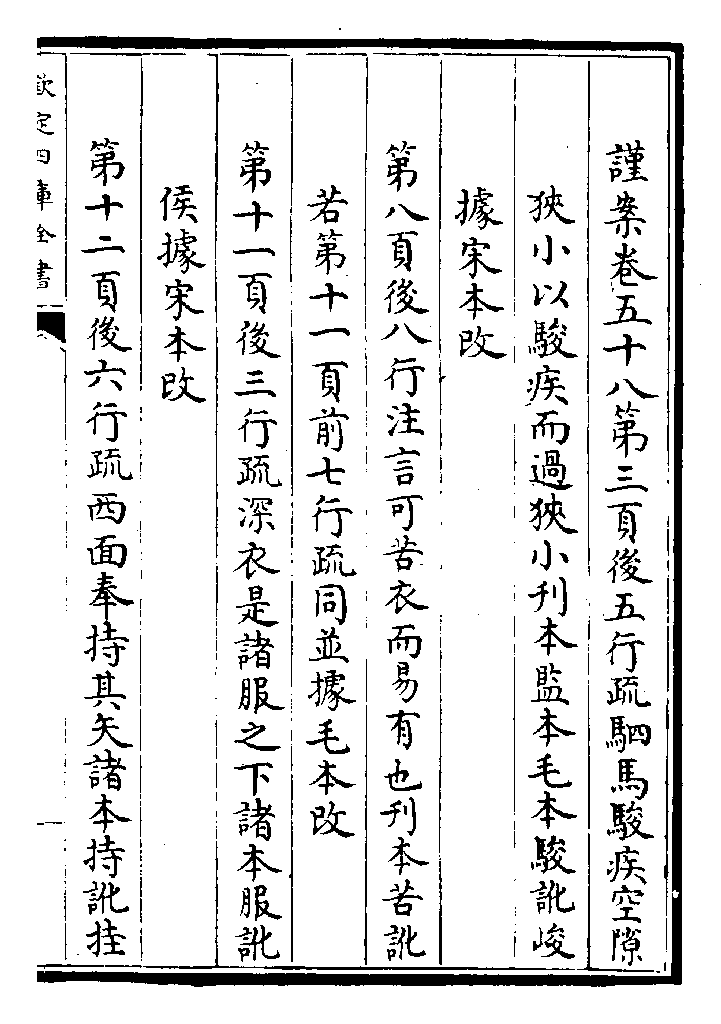 謹案卷五十八第三頁後五行疏駟馬駿疾空隙
狹小以駿疾而過狹小刊本監本毛本駿訛峻
據宋本改
第八頁後八行注言可苦衣而易有也刊本苦訛
若第十一頁前七行疏同並據毛本改
第十一頁後三行疏深衣是諸服之下諸本服訛
侯據宋本改
第十二頁後六行疏西面奉持其矢諸本持訛挂
欽定四庫全書